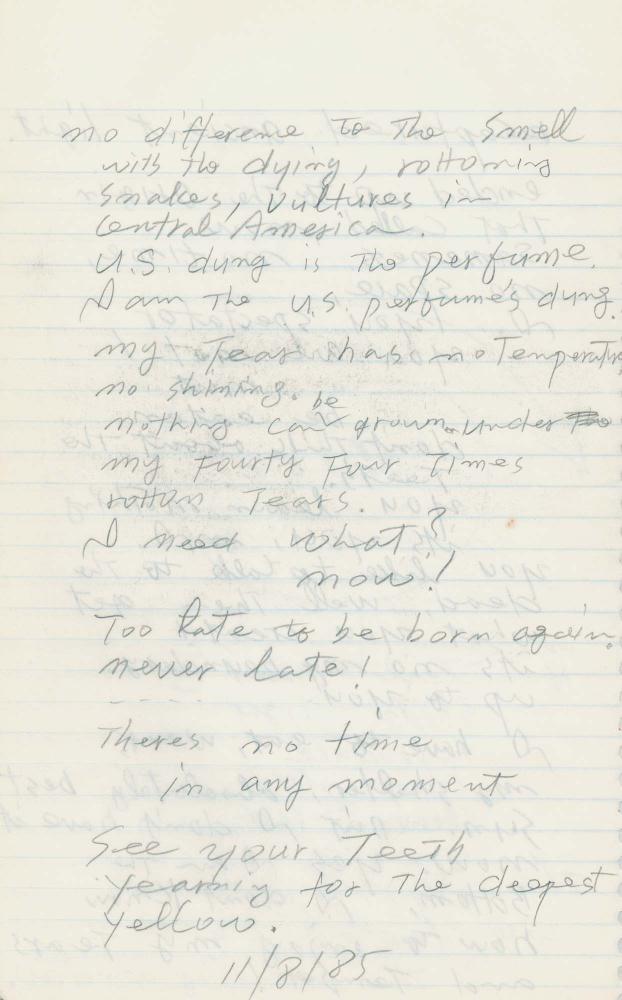 no difference to the smell
with the dying, rottoning
snakes, vultures in
Central America.
U.S. dung is the perfume.
I am the U.S. perfume's dung.
my Tear has no Temperature
no shining.
nothing can be grown. under
my Fourty Four Times
rotton Tears.
I need what?
now!
Too late to be born again.
never late!
-----
Theres no time
in any moment
See your Teeth
yearnig for the deepest
yellow.
11/8/85